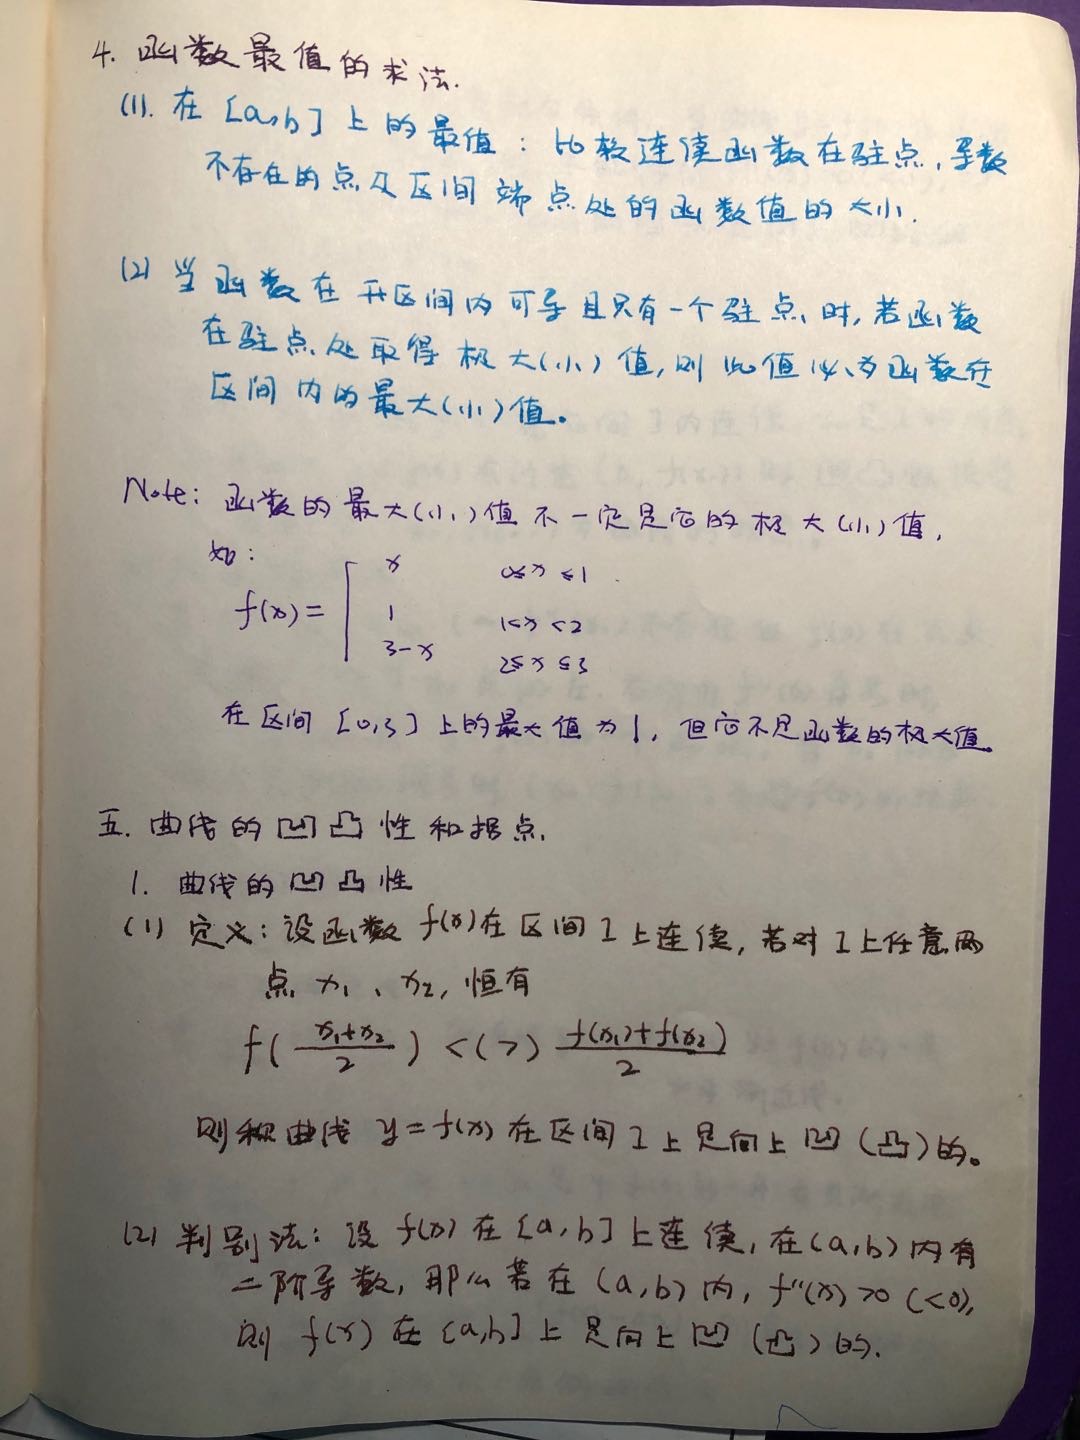 4. 函数最值的求法.
(1). 在[a,b]上的最值：比较连续函数在驻点，导数
不存在的点及区间端点处的函数值的大小.
(2) 当函数在开区间内可导且只有一个驻点时，若函数
在驻点处取得极大(小)值,则此值必为函数在
区间内的最大(小)值。
Note: 函数的最大(小)值不一定是它的极大(小)值,
如:
x 0≤x≤1
f(x)= 1 1<x<2
3-x 2≤x≤3
在区间[0,3]上的最大值为1, 但它不是函数的极大值。
五. 曲线的凹凸性和拐点.
1. 曲线的凹凸性
(1) 定义: 设函数f(x)在区间I上连续, 若对I上任意两
点x₁、x₂, 恒有
f( (x₁+x₂)/2 ) <(>) (f(x₁)+f(x₂))/2
则称曲线y=f(x)在区间I上是向上凹(凸)的。
(2) 判别法: 设f(x)在[a,b]上连续, 在(a,b)内有
二阶导数, 那么若在(a,b)内, f''(x)>0 (<0),
则f(x)在[a,b]上是向上凹(凸)的.